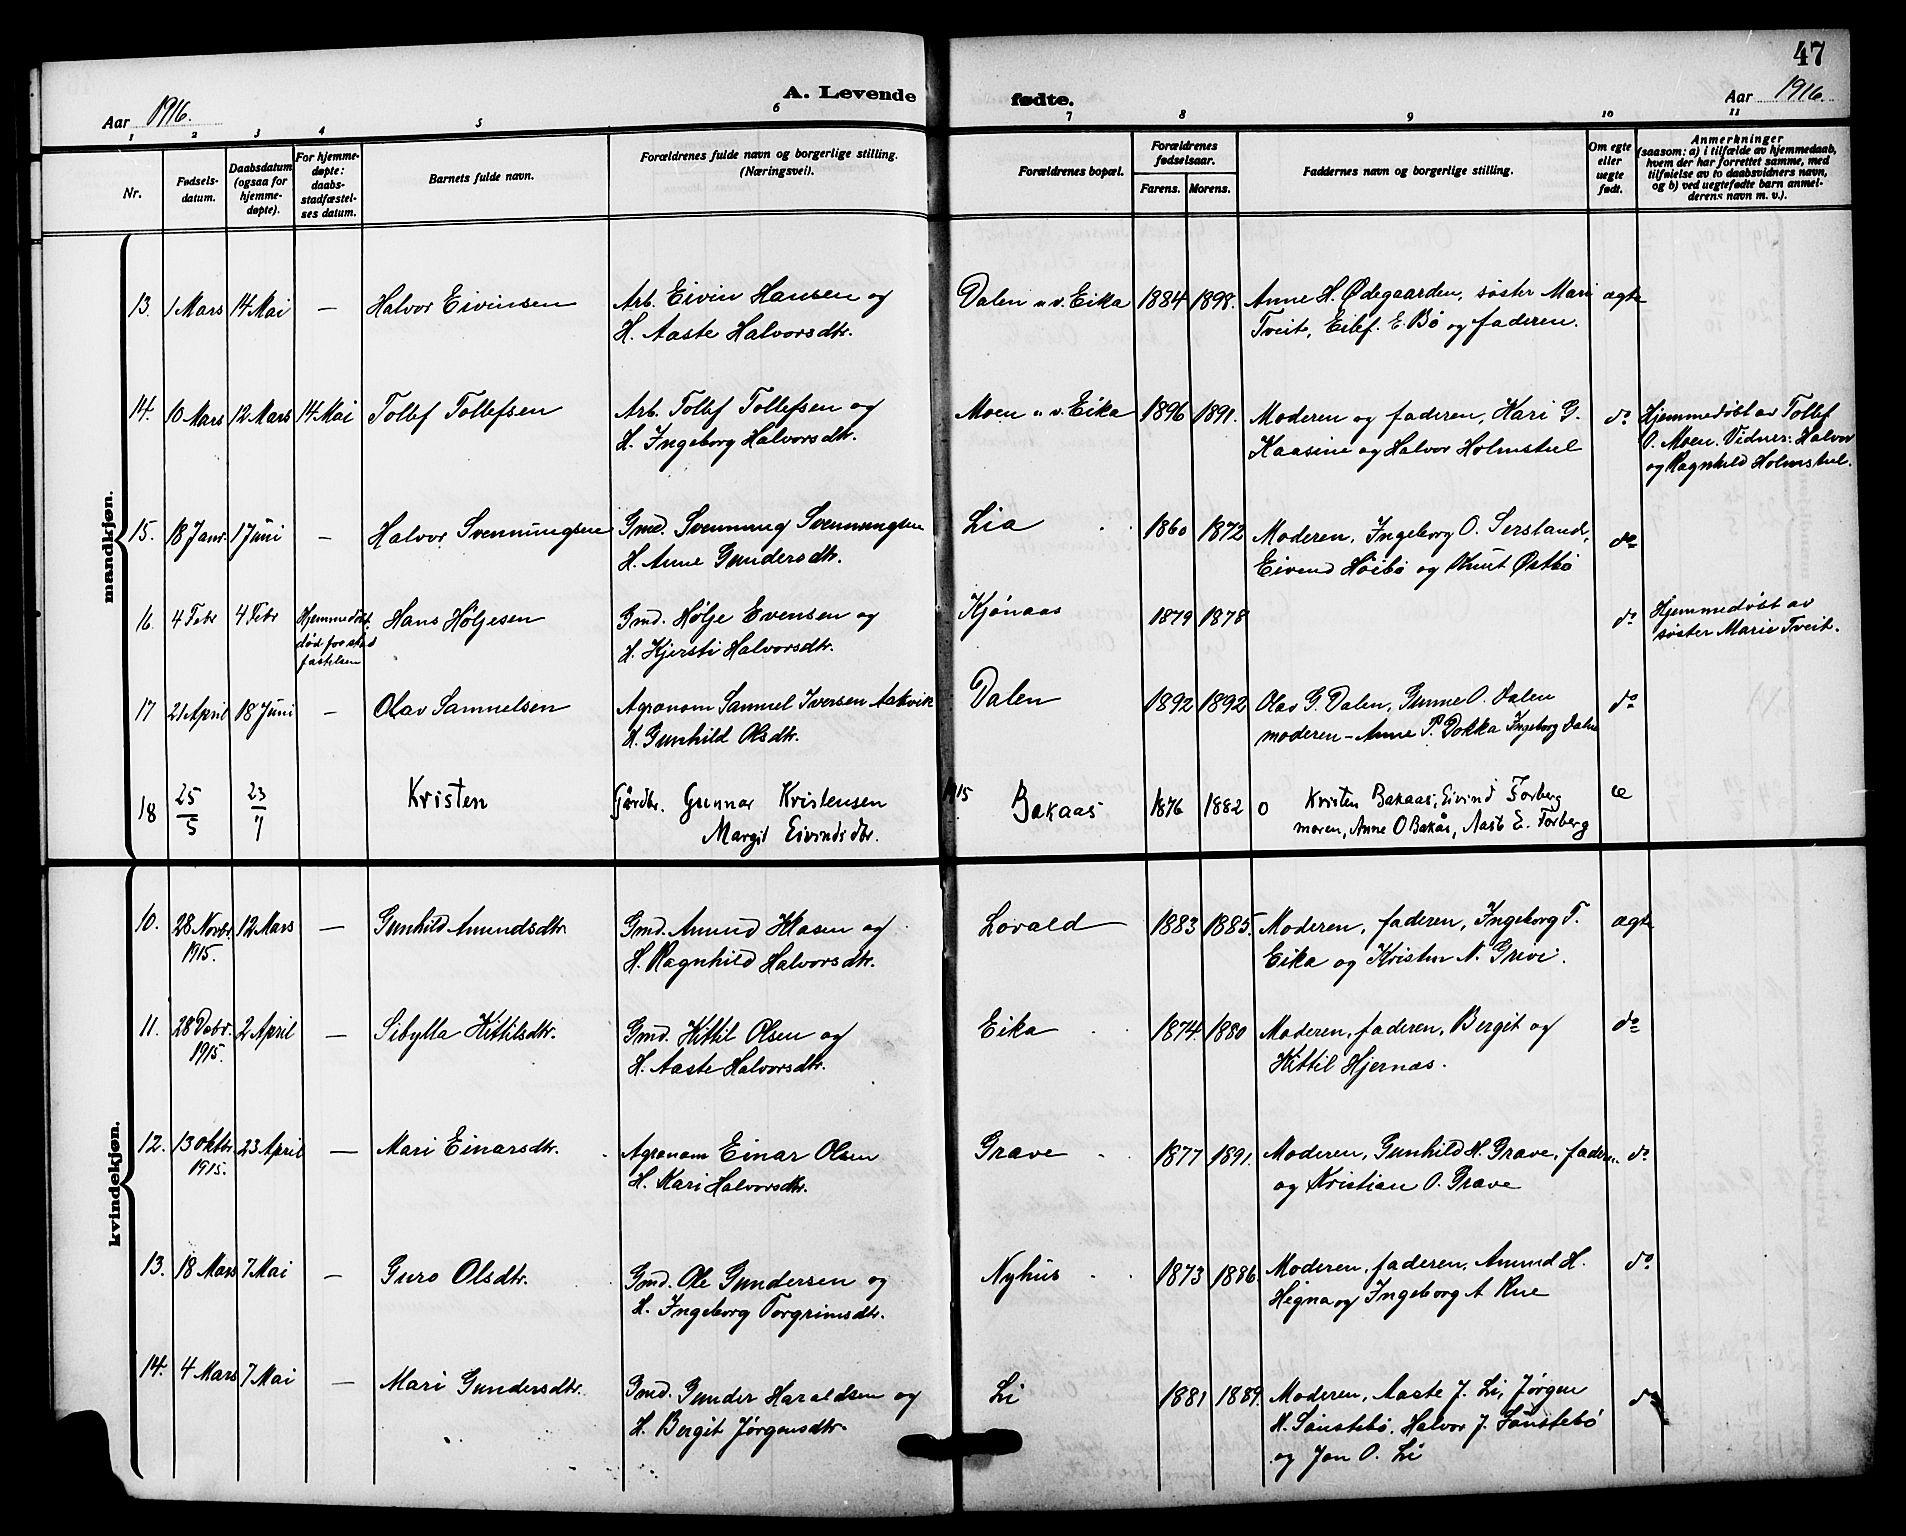 47
A. Levende fødte.
Aar 1916. Aar 1916.
1 2 3 4 5 6 7 8 9 10 11
Nr.
Fødsels-
datum.
Daabsdatum
(ogsaa for
hjemme-
døpte).
For hjemme-
døpte:
daabs-
stadfæstel-
ses datum.
Barnets fulde navn.
Forældrenes fulde navn og borgerlige stilling.
(Næringsvei).
Forældrenes bopæl.
Forældrenes
fødselsaar.
Farens. Morens.
Faddernes navn og borgerlige stilling.
Om egte
eller
uegte
født.
Anmerkninger
(saasom: a) i tilfælde av hjemmedaab,
hvem der har forrettet samme, med
tilføielse av to daabsvidners navn,
og b) ved uegtefødte barn anmel-
derens navn m. v.).
mandkjøn.
13. 1 Mars 14 Mai — Halvor Eivinsen Arb. Eivin Hansen og Dalen u. v. Eika 1884 1898. Anne H. Ødegaarden, søster Mari ægte
H. Aaste Halvorsdtr. Tveit, Eilef. E. Bø og faderen.
14. 10 Mars 12 Mars 14 Mai Tollef Tollefsen Arb. Tollef Tollefsen og Moen u. v. Eika 1896 1891. Moderen og faderen, Kari G. do Hjemmedøbt av Tollef
H. Ingeborg Halvorsdtr. Kaasine og Halvor Holmstul O. Moen. Vidner: Halvor
og Ragnhild Holmstul.
15. 18 Janr. 1 Juni — Halvor Svennungsen Gmd. Svennung Svennungsen Lia 1860 1872 Moderen, Ingeborg O. Sersland, do
H. Anne Gundersdtr. Eivend Høibø og Knut Østbø
16. 4 Febr 4 Febr Hjemmedøbt. Hans Høljesen Gmd. Hølje Evensen og Kjønaas 1879 1878 do Hjemmedøbt av
død før stad H. Kjersti Halvorsdtr. søster Marie Tveit.
fæstelsen
17 21 April 18 Juni — Olav Samuelsen Agronom Samuel Iversen Aakvik Dalen 1892 1892 Olav G. Dalen, Gunne O. Dalen do
H. Gunhild Olsdtr. moderen – Anne P. Dokka Ingeborg Dalen
18 25/5 23/7 Kristen Gårdbr. Gunnar Kristensen 1915 Bakaas 1876 1882 O Kristen Bakaas, Eivind Forberg æ
Margit Eivindsdtr. moren, Anne O Bakås, Aast E. Forberg
kvindekjøn.
10. 28 Novbr. 12 Mars — Gunhild Amundsdtr Gmd. Amund Klasen og Lovald 1883 1885. Moderen, faderen, Ingeborg T. ægte
1915. H. Ragnhild Halvorsdtr. Eika og Kristen N. Grivi.
11. 28 Debr. 2 April — Sibylla Kittilsdtr. Gmd. Kittil Olsen og Eika 1874. 1880 Moderen, faderen, Bergit og do
1915. H. Aaste Halvorsdtr. Kittil Hjernæs.
12. 13 Oktbr 23 April — Mari Einarsdtr. Agronom Einar Olsen Grave 1877 1891. Moderen, Gunhild H. Grave, faderen. do
1915. H. Kari Halvorsdtr. og Kristian O. Grave
13. 18 Mars 7 Mai — Guro Olsdtr. Gmd. Ole Gundersen og Nyhus 1873 1886 Moderen, faderen, Amund H. do
H. Ingeborg Torgrimsdtr. Hegna og Ingeborg A Rue
14. 4 Mars 7 Mai — Mari Gundersdtr. Gmd. Gunder Haraldsen og Li 1881 1889. Moderen, Aaste J. Li, Jørgen do
H. Bergit Jørgensdtr. H. Sønstebø, Halvor J. Sønstebø
og Jon O. Li